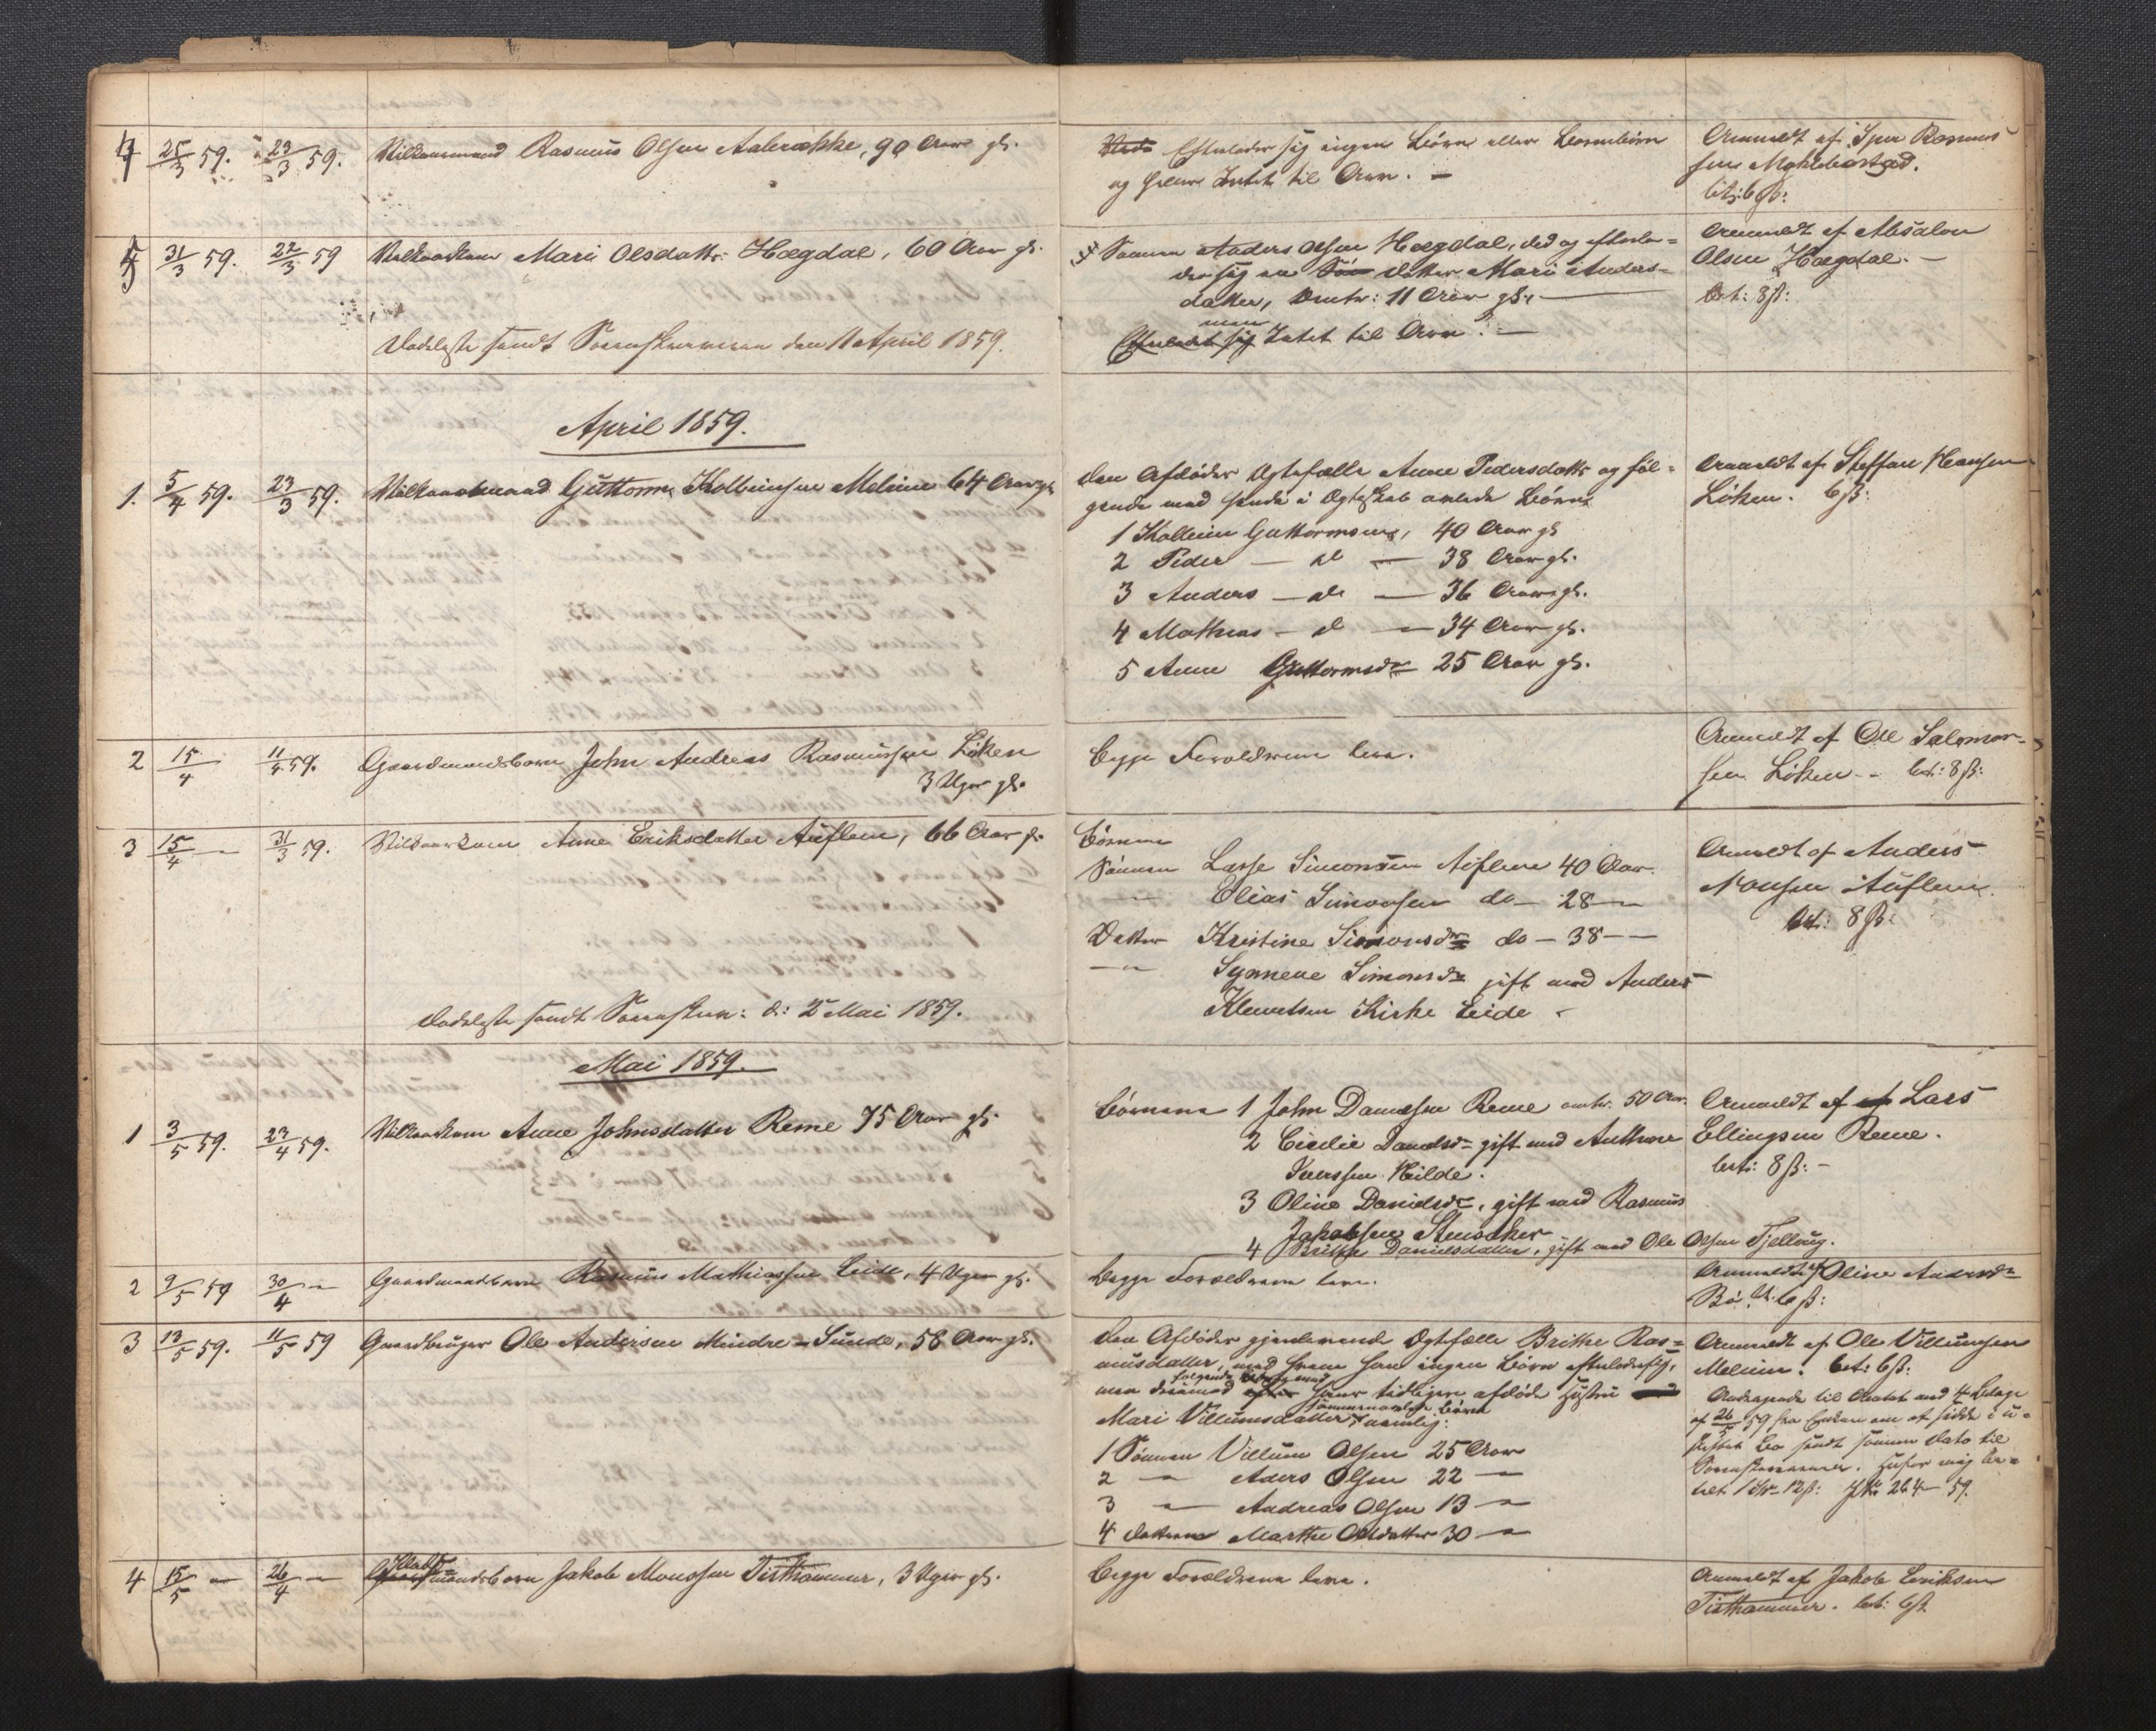 4 25/3 59. 23/3 59. Vilkaarmand Rasmus Olsen Aabrække, 90 Aar gl.
Efterlader sig ingen Børn eller Børnebørn
og heller Intet til Arv. —
Anmeldt af Sper Rasmus
sen Myklebostad.
bet: 6 ß:
5 31/3 59. 22/3 59 Vilkaarkone Mari Olsdatter Hægdal, 60 Aar gl.
Sønnen Anders Olsen Hægdal, død og efterla-
der sig en Søn datter Mari Anders-
datter, omtr: 11 Aar gl. —
men
Efterladt sig Intet til Arv. —
Anmeldt af Absalon
Olsen Hægdal. —
bet: 8 ß:
Dødsliste sendt Sorenskriveren den 11 April 1859.
April 1859.
1. 5/4 59. 23/3 59. Vilkaarmand Guttorm Kolbeinsen Melheim 64 Aar gl.
Den Afdødes Ægtefælle Anne Pedersdatter og føl-
gende med hende i Ægteskab avlede Børn
1 Kolbein Guttormsen, 40 Aar gl
2 Peder — do — 38 Aar gl.
3 Anders — do — 36 Aar gl.
4 Mathias — do — 34 Aar gl.
5 Anne Guttormsdr 25 Aar gl.
Anmeldt af Steffen Hansen
Löken. 6 ß:
2 15/4 11/4 59. Gaardmandsbarn John Andreas Rasmussen Löken
3 Uger gl.
Begge Forældrene leve.
Anmeldt af Ole Salomon-
sen Löken — bet: 8 ß:
3 15/4 — 31/3 59. Vilkaarkone Anne Eriksdatter Auflem, 66 Aar gl.
Børnene
Sønnen Lasse Simonsen Auflem 40 Aar.
— Elias Simonsen do — 28 —
Datter Kristine Simonsdr do — 38 —
— Synneve Simonsdr gift med Anders
Klemetsen Kirke Eide
Anmeldt af Anders
Monsen Auflem.
bet: 8 ß:
Dødsliste sendt Sorenskr: d: 2 Mai 1859.
Mai 1859.
1 3/5 59. 23/4 59. Vilkaarkone Anne Johnsdatter Reme 75 Aar gl.
Børnene 1 John Danielsen Reme omtr. 50 Aar.
2 Cicilie Danielsdr gift med Anthone
Iverssen Hilde.
3 Oline Danielsdr, gift med Rasmus
Jakobsen Stensaker
4 Brithe Danielsdatter, gift med Ole Olsen Tjellaug.
Anmeldt af af Lars
Ellingsen Reme.
bet: 8 ß: —
2 9/5 59 30/4 — Gaardmandsbarn Rasmus Mathiassen Eide, 4 Uger gl.
Begge Forældrene leve.
Anmeldt af Oline Andersdr
Bö. bt. 6 ß:
3 13/5 59. 11/5 59 Gaardbruger Ole Andersen Mindre-Sunde, 58 Aar gl.
Den Afdødes gjenlevende Ægtefælle Brithe Ras-
musdatter, med hvem han ingen Børn efterlader sig,
følgende
men derimod efter hans tidligere afdøde Hustru
sammenavlede Børn
Mari Villumsdatter nemlig:
1 Sønnen Villum Olsen 25 Aar
2 — Aders Olsen 22 —
3 — Andreas Olsen 13 —
4 Datteren Marthe Olsdatter 30 —
Anmeldt af Ole Villumsen
Melheim. bet: 6 ß:
Andragende til Amtet med 4 Bilage
af 26/5 59 fra Enken om at sidde i u-
skiftet Bo sendt samme Dato til
Sorenskriveren. Hufor mig be-
talt 1 Ort 12 ß: JN: 264 — 59.
4 15/5 — 26/4 — Gaardmandsbarn Jakob Monssen Tisthammer, 3 Uger gl.
Begge Forældrene leve.
Anmeldt af Jakob Eriksen
Tisthammer. bet: 6 ß